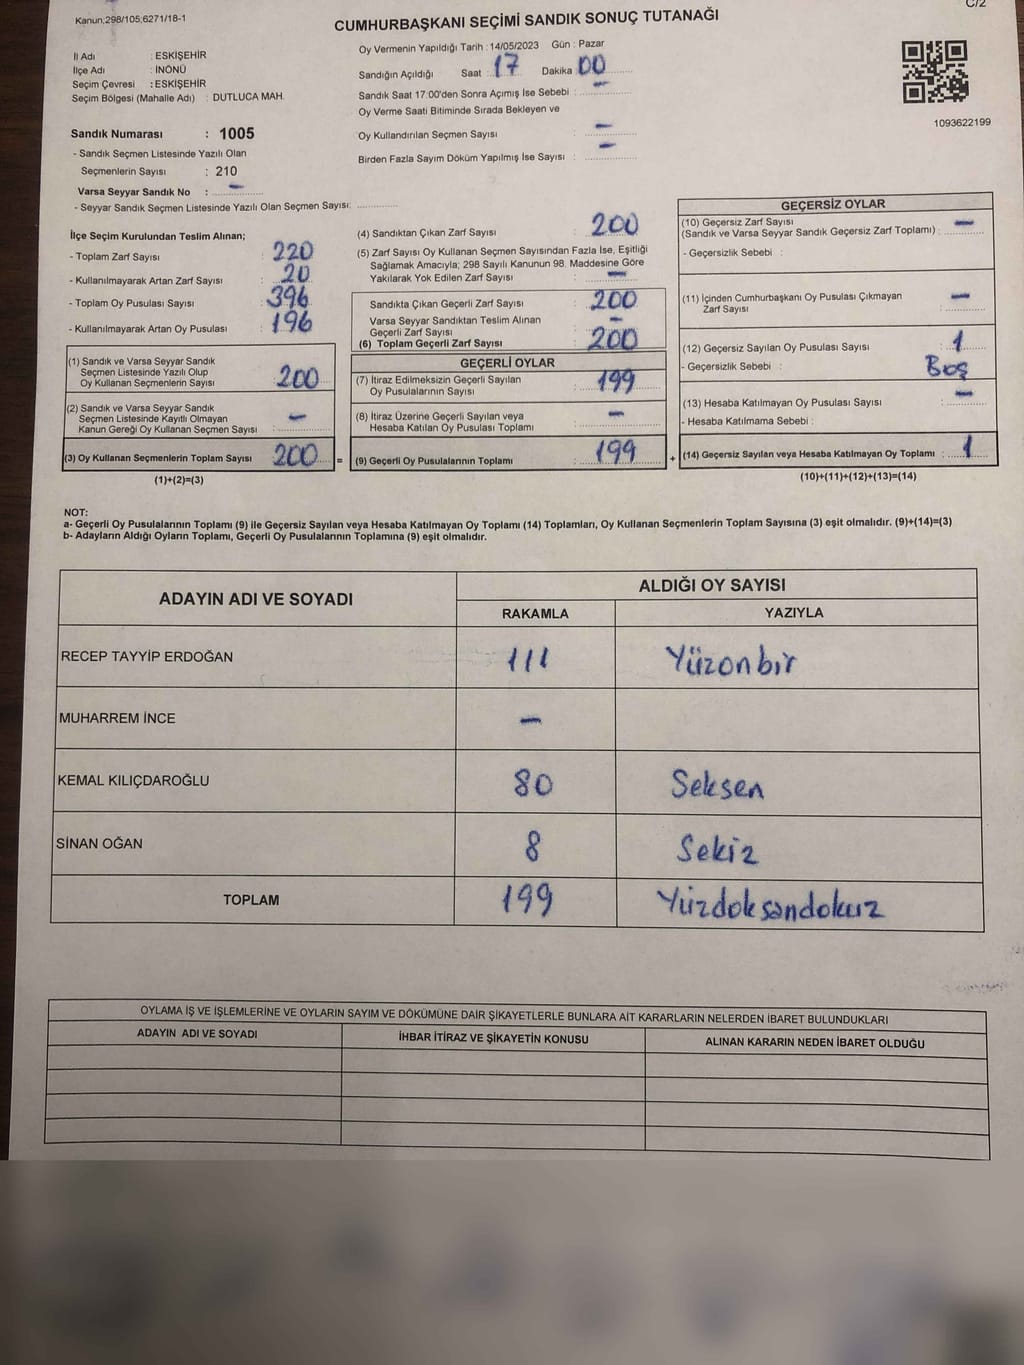 C/2
Kanun;298/105;6271/18-1
CUMHURBAŞKANI SEÇİMİ SANDIK SONUÇ TUTANAĞI
İl Adı : ESKİŞEHİR
İlçe Adı : İNÖNÜ
Seçim Çevresi : ESKİŞEHİR
Seçim Bölgesi (Mahalle Adı) : DUTLUCA MAH.
Oy Vermenin Yapıldığı Tarih : 14/05/2023 Gün : Pazar
Sandığın Açıldığı Saat : 17 Dakika 00
Sandık Saat 17:00'den Sonra Açımış İse Sebebi : -
Oy Verme Saati Bitiminde Sırada Bekleyen ve
Oy Kullandırılan Seçmen Sayısı : -
Birden Fazla Sayım Döküm Yapılmış İse Sayısı : -
1093622199
Sandık Numarası : 1005
- Sandık Seçmen Listesinde Yazılı Olan
Seçmenlerin Sayısı : 210
Varsa Seyyar Sandık No : -
- Seyyar Sandık Seçmen Listesinde Yazılı Olan Seçmen Sayısı:
İlçe Seçim Kurulundan Teslim Alınan;
- Toplam Zarf Sayısı : 220
- Kullanılmayarak Artan Zarf Sayısı : 20
- Toplam Oy Pusulası Sayısı : 396
- Kullanılmayarak Artan Oy Pusulası : 196
(1) Sandık ve Varsa Seyyar Sandık
Seçmen Listesinde Yazılı Olup
Oy Kullanan Seçmenlerin Sayısı : 200
(2) Sandık ve Varsa Seyyar Sandık
Seçmen Listesinde Kayıtlı Olmayan
Kanun Gereği Oy Kullanan Seçmen Sayısı : -
(3) Oy Kullanan Seçmenlerin Toplam Sayısı : 200 =
(1)+(2)=(3)
(4) Sandıktan Çıkan Zarf Sayısı : 200
(5) Zarf Sayısı Oy Kullanan Seçmen Sayısından Fazla İse, Eşitliği
Sağlamak Amacıyla; 298 Sayılı Kanunun 98. Maddesine Göre
Yakılarak Yok Edilen Zarf Sayısı : -
Sandıkta Çıkan Geçerli Zarf Sayısı : 200
Varsa Seyyar Sandıktan Teslim Alınan
Geçerli Zarf Sayısı : -
(6) Toplam Geçerli Zarf Sayısı : 200
GEÇERLİ OYLAR
(7) İtiraz Edilmeksizin Geçerli Sayılan
Oy Pusulalarının Sayısı : 199
(8) İtiraz Üzerine Geçerli Sayılan veya
Hesaba Katılan Oy Pusulası Toplamı : -
(9) Geçerli Oy Pusulalarının Toplamı : 199 +
GEÇERSİZ OYLAR
(10) Geçersiz Zarf Sayısı
(Sandık ve Varsa Seyyar Sandık Geçersiz Zarf Toplamı) : -
- Geçersizlik Sebebi :
(11) İçinden Cumhurbaşkanı Oy Pusulası Çıkmayan
Zarf Sayısı : -
(12) Geçersiz Sayılan Oy Pusulası Sayısı : 1
- Geçersizlik Sebebi : Boş
(13) Hesaba Katılmayan Oy Pusulası Sayısı : -
- Hesaba Katılmama Sebebi :
(14) Geçersiz Sayılan veya Hesaba Katılmayan Oy Toplamı : 1
(10)+(11)+(12)+(13)=(14)
NOT:
a- Geçerli Oy Pusulalarının Toplamı (9) ile Geçersiz Sayılan veya Hesaba Katılmayan Oy Toplamı (14) Toplamları, Oy Kullanan Seçmenlerin Toplam Sayısına (3) eşit olmalıdır. (9)+(14)=(3)
b- Adayların Aldığı Oyların Toplamı, Geçerli Oy Pusulalarının Toplamına (9) eşit olmalıdır.
ADAYIN ADI VE SOYADI ALDIĞI OY SAYISI
RAKAMLA YAZIYLA
RECEP TAYYİP ERDOĞAN 111 Yüzonbir
MUHARREM İNCE -
KEMAL KILIÇDAROĞLU 80 Seksen
SİNAN OĞAN 8 Sekiz
TOPLAM 199 Yüzdoksandokuz
OYLAMA İŞ VE İŞLEMLERİNE VE OYLARIN SAYIM VE DÖKÜMÜNE DAİR ŞİKAYETLERLE BUNLARA AİT KARARLARIN NELERDEN İBARET BULUNDUKLARI
ADAYIN ADI VE SOYADI İHBAR İTİRAZ VE ŞİKAYETİN KONUSU ALINAN KARARIN NEDEN İBARET OLDUĞU